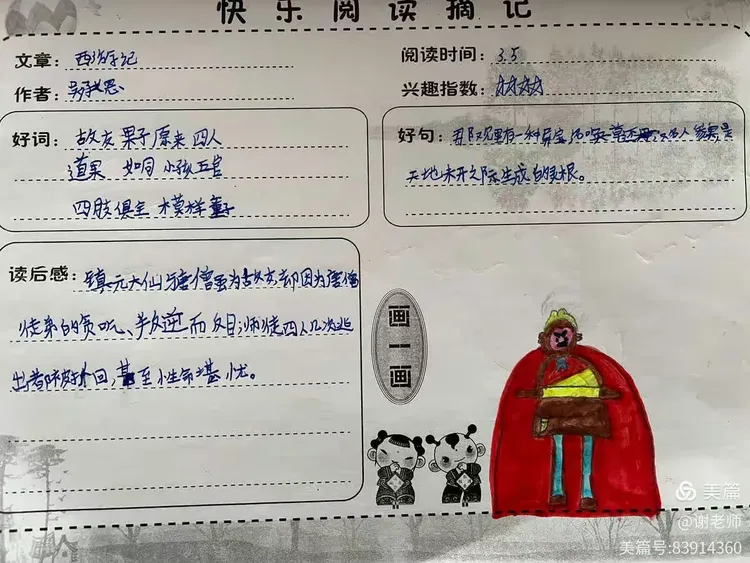 快乐阅读摘记
文章：西游记
阅读时间：3.5
作者：吴承恩
兴趣指数：
好词：故友 果子 原来 四人
道果 如同 小孩 五官
四肢俱全 模样 童子
好句：观里有一种异宝
天地未开之际生成的灵根。
读后感：镇元大仙与唐僧虽为故友却因为唐僧
徒弟的贪吃、叛逆而反目，师徒四人几次逃
出都被 回，甚至性命堪忧。
画一画
美篇
@谢老师
美篇号:83914360